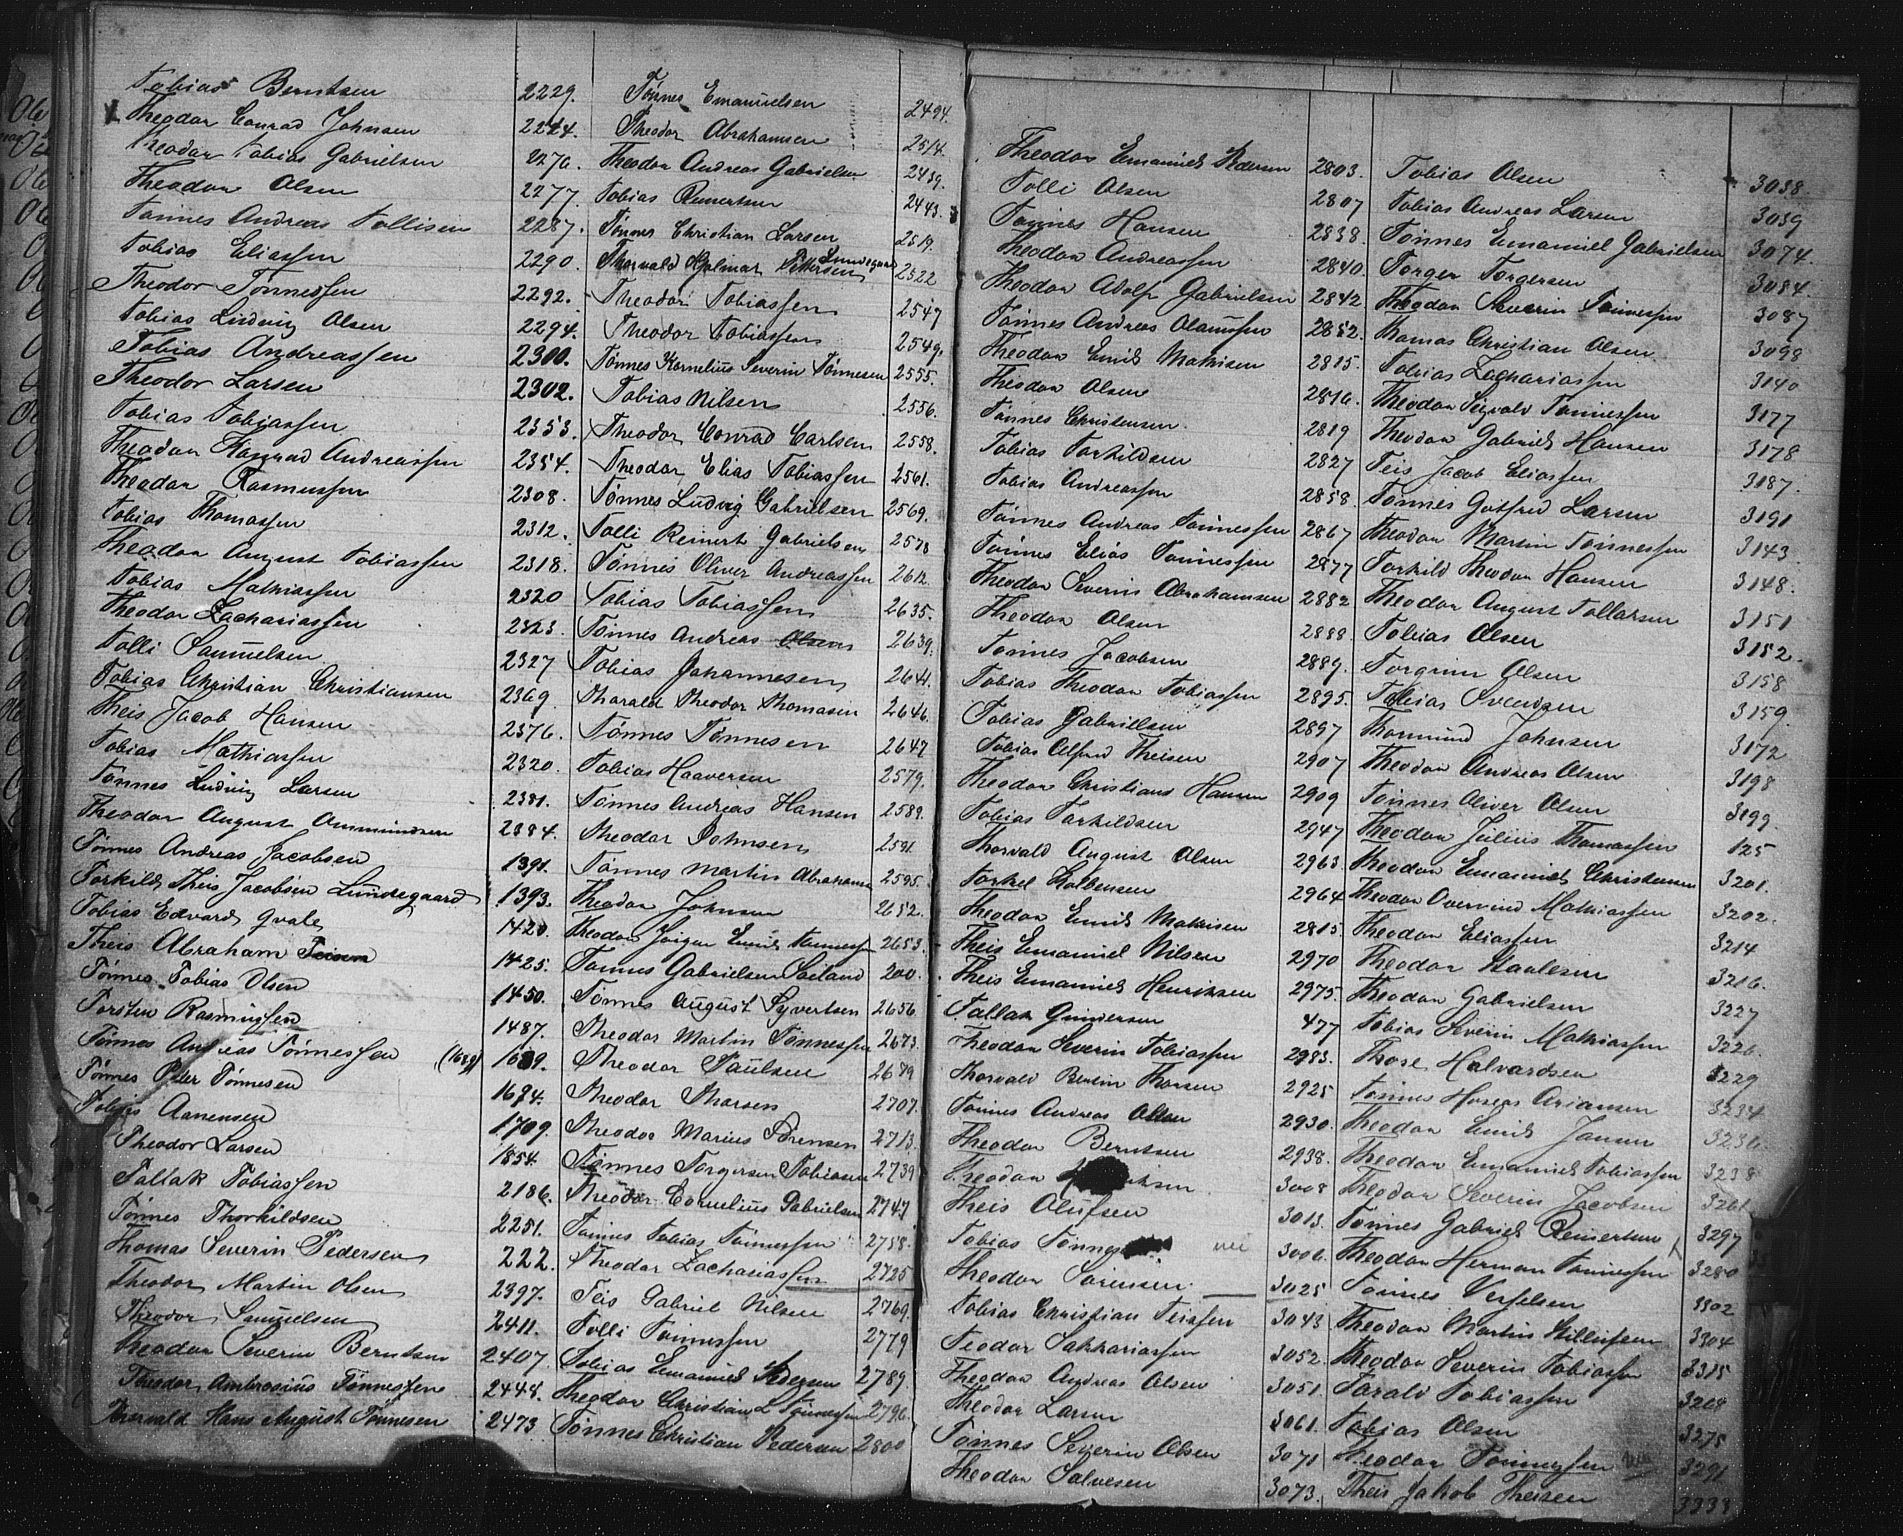 Tobias Berntsen 2229.
Theodor Conrad Johnsen 2224.
Theodor Tobias Gabrielsen 2276.
Theodor Olsen 2277.
Tønnes Andreas Tollisen 2287.
Tobias Eliassen 2290.
Theodor Tønnessen 2292.
Tobias Ludvig Olsen 2294.
Tobias Andreassen 2300.
Theodor Larsen 2302.
Tobias Tobiassen 2353.
Theodor Konrad Andreassen 2354.
Theodor Rasmussen 2308.
Tobias Thomassen 2312.
Theodor August Tobiassen 2318.
Tobias Mathiassen 2320
Theodor Zachariassen 2323.
Tolli Samuelsen 2327
Tobias Christian Christiansen 2369.
Theis Jacob Hansen 2376.
Tobias Mathiassen 2320.
Tønnes Ludvig Larsen 2381.
Theodor August Ammundsen 2384.
Tønnes Andreas Jacobsen 1391.
Torkild Theis Jacobsen Lundegaard 1393.
Tobias Edvard Qvale 1420.
Theis Abraham 1425.
Tønnes Tobias Olsen 1450.
Torsten Rasmussen 1487.
Tønnes Andreas Tønnessen (1689) 1689.
Tønnes Peter Tønnesen 1694.
Tobias Aanensen 1709.
Theodor Larsen 1854.
Tallak Tobiassen 2186.
Tønnes Thorkildsen 2251.
Thomas Severin Pedersen 222.
Theodor Martin Olsen 2397.
Theodor Samuelsen 2411.
Theodor Severin Berntsen 2407.
Theodor Ambrosius Tønnessen 2448.
Thorvald Hans August Tønnesen 2473
Tønnes Emanuelsen 2494.
Theodor Abrahamsen 2514.
Theodor Andreas Gabrielsen 2439.
Tobias Reinertsen 2443.
Tønnes Christian Larsen 2519.
Lundegaard
Thorvald Hjalmar Pettersen 2522
Theodor Tobiassen 2547
Theodor Tobiassen 2549.
Tønnes Kornelius Severin Tønnesen 2555.
Tobias Nilsen 2556.
Theodor Conrad Carlsen 2558.
Theodor Elias Tobiassen 2561.
Tønnes Ludvig Gabrielsen 2569.
Tolli Reinert Gabrielsen 2578
Tønnes Oliver Andreassen 2612.
Tobias Tobiassen 2635.
Tønnes Andreas Olsen 2639.
Tobias Johannesen 2641.
Tharald Theodor Thomasen 2646.
Tønnes Tønnesen 2647
Tobias Haaversen 2579.
Tønnes Andreas Hansen 2589.
Theodor Johnsen 2591
Tønnes Martin Abrahamsen 2595.
Theodor Johnsen 2652.
Theodor Jørgen Emil 2653.
Tønnes Gabrielsen 200.
Tønnes August Syvertsen 2656.
Theodor Martin Tønnessen 2673.
Theodor Paulsen 2679
Theodor Thorsen 2707.
Theodor Marius Sørensen 2713.
Tønnes Torgersen Tobiasen 2739
Theodor Cornelius Gabrielsen 2747
Tønnes Tobias Tønnessen 2758.
Theodor Zachariassen 2725
Teis Gabriel Nilsen 2769.
Tolli Tønnessen 2779
Tobias Emanuel Pedersen 2789
Theodor Christian L Tønnessen 2796.
Tønnes Christian Pedersen 2800
Theodor Emanuel Pedersen 2803.
Tolli Olsen 2807
Tønnes Hansen 2838.
Theodor Andreassen 2840.
Theodor Adolf Gabrielsen 2842
Tønnes Andreas Olaussen 2852.
Theodor Emil Mathisen 2815.
Theodor Olsen 2816.
Tønnes Christensen 2819
Tobias Torkildsen 2827
Tobias Andreassen 2858.
Tønnes Andreas Tønnessen 2867
Tønnes Elias Tønnessen 2877
Theodor Severin Abrahamsen 2882
Theodor Olsen 2888.
Tønnes Jacobsen 2889.
Tobias Theodor Tobiassen 2895.
Tobias Gabrielsen 2897
Tobias Alfred Theisen 2907
Theodor Christians Hansen 2909
Tobias Torkildsen 2947
Thorvald August Olsen 2963
Torkel Kolbensen 2964
Theodor Emil Mathisen 2815.
Theis Emanuel Nilsen 2970
Theis Emanuel Henriksen 2975.
Tallak Gundersen 477
Theodor Severin Tobiassen 2983.
Thorvald Berlin Thorsen 2925
Tønnes Andreas Olsen 2930.
Theodor Berntsen 2938.
Theodor 3008
Theis Olufsen 3013.
Tobias 3006.
Theodor Sørensen 3025
Tobias Christian Teissen 3043
Teodor Sakkariassen 3052.
Theodor Andreas Olsen 3051.
Theodor Larsen 3061.
Tønnes Severin Olsen 3071
Theodor Salvesen 3073.
Tobias Olsen 3038.
Tobias Andreas Larsen 3039
Tønnes Emanuel Gabrielsen 3074
Torger Torgersen 3084.
Theodor Severin Tønnessen 3087
Thomas Christian Olsen 3098
Tobias Zachariassen 3140
Theodor Sigvald Tønnessen 3177
Theodor Gabriel Hansen 3178
Teis Jacob Eliassen 3187.
Tønnes Gotfred Larsen 3191
Theodor Martin Tønnessen 3143.
Torkild Theodor Hansen 3148.
Theodor August Tallaksen 3151
Tobias Olsen 3152.
Torgrim Olsen 3158
Tobias Svendsen 3159.
Thormund Johnsen 3172
Theodor Andreas Olsen 3198
Tønnes Oliver Olsen 3199.
Theodor Julius Thomassen 125
Theodor Emanuel Christensen 3201.
Theodor Overvind Mathiassen 3202.
Theodor Eliassen 3214
Theodor Staalesen 3216.
Theodor Gabrielsen 3227
Tobias Severin Mathiassen 3226.
Thore Halvardsen 3229
Tønnes Hoseas Ariansen 3234
Theodor Emil Jansen 3236.
Theodor Emanuel Tobiassen 3238
Theodor Severin Jacobsen 3261.
Tønnes Gabriel Reinertsen 3297
Theodor Herman Tønnessen 3280
Tønnes 3302
Theodor Martin 3304
Theodor Severin Tobiassen 3315
Tarald Tobiassen 3268
Tobias Olsen 3275
Theodor Tønnessen 3291
Theis Jakob Theisen 3338